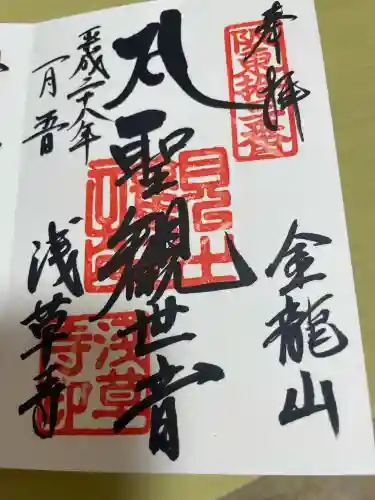 奉拝
坂東拾三番
金龍山
聖観世音
平成二十八年
一月五日
浅草寺
浅草寺印